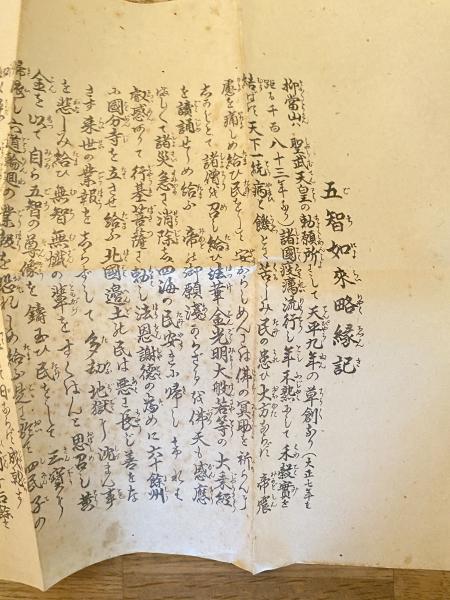 五智如來略縁記
抑當山ハ聖武天皇の勅願所にして天平九年の草創なり(大正七年を
距る千百八十三年なり)諸國疫癘流行し年不熟にして米穀實を
結ばず天下一統病と饑とに苦しみ民の患ひ大方ならず帝宸
慮を痛しめ給ひ民をして安からしめんにハ佛の冥助を祈らんに
しかじとて諸僧を召し給ひ法華金光明大般若等の大乘經
を讀誦せしめ給ふ帝の御願淺からざれバ佛天も感應
ましくて諸災急に消除し四海の民安きに帰しければ
叡感ありて行基菩薩に勅し法恩謝德の為めに六十餘州
に國分寺を立させ給ふ北國邊土の民は悪に長じ善をな
さず来世の業報をしらずして多劫地獄に沈まん事
を悲しみ給ひ無智無慚の輩をすくはんと思召し黄
金を以て自ら五智の尊像を鑄玉ひ民をして三寶に
帰し六道輪廻の業報を恐れしめ給ふ